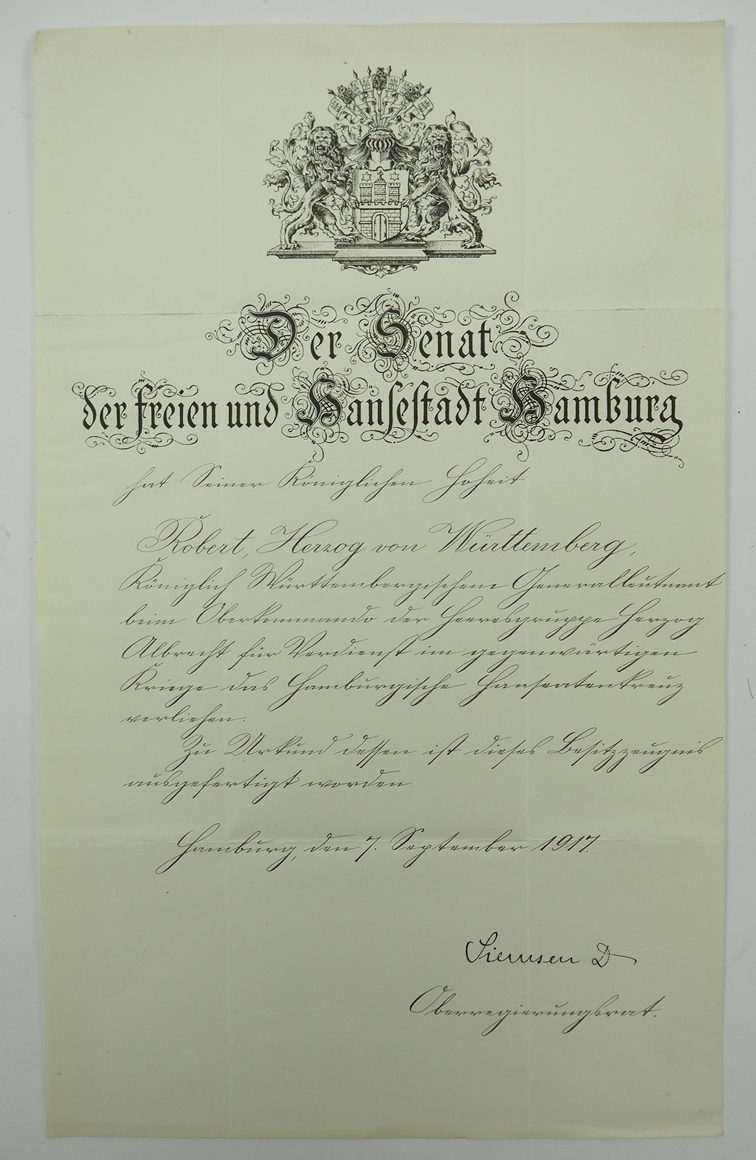 Der Senat
der freien und Hansestadt Hamburg
hat Seiner Königlichen Hoheit
Robert, Herzog von Württemberg,
Königlich Württembergischem Generalleutnant
beim Oberkommando der Heeresgruppe Herzog
Albrecht für Verdienst im gegenwärtigen
Kriege das Hamburgische Hanseatenkreuz
verliehen.
Zu Urkund dessen ist dieses Besitzzeugnis
ausgefertigt worden.
Hamburg, den 7. September 1917.
Siemsen D
Oberregierungsrat.